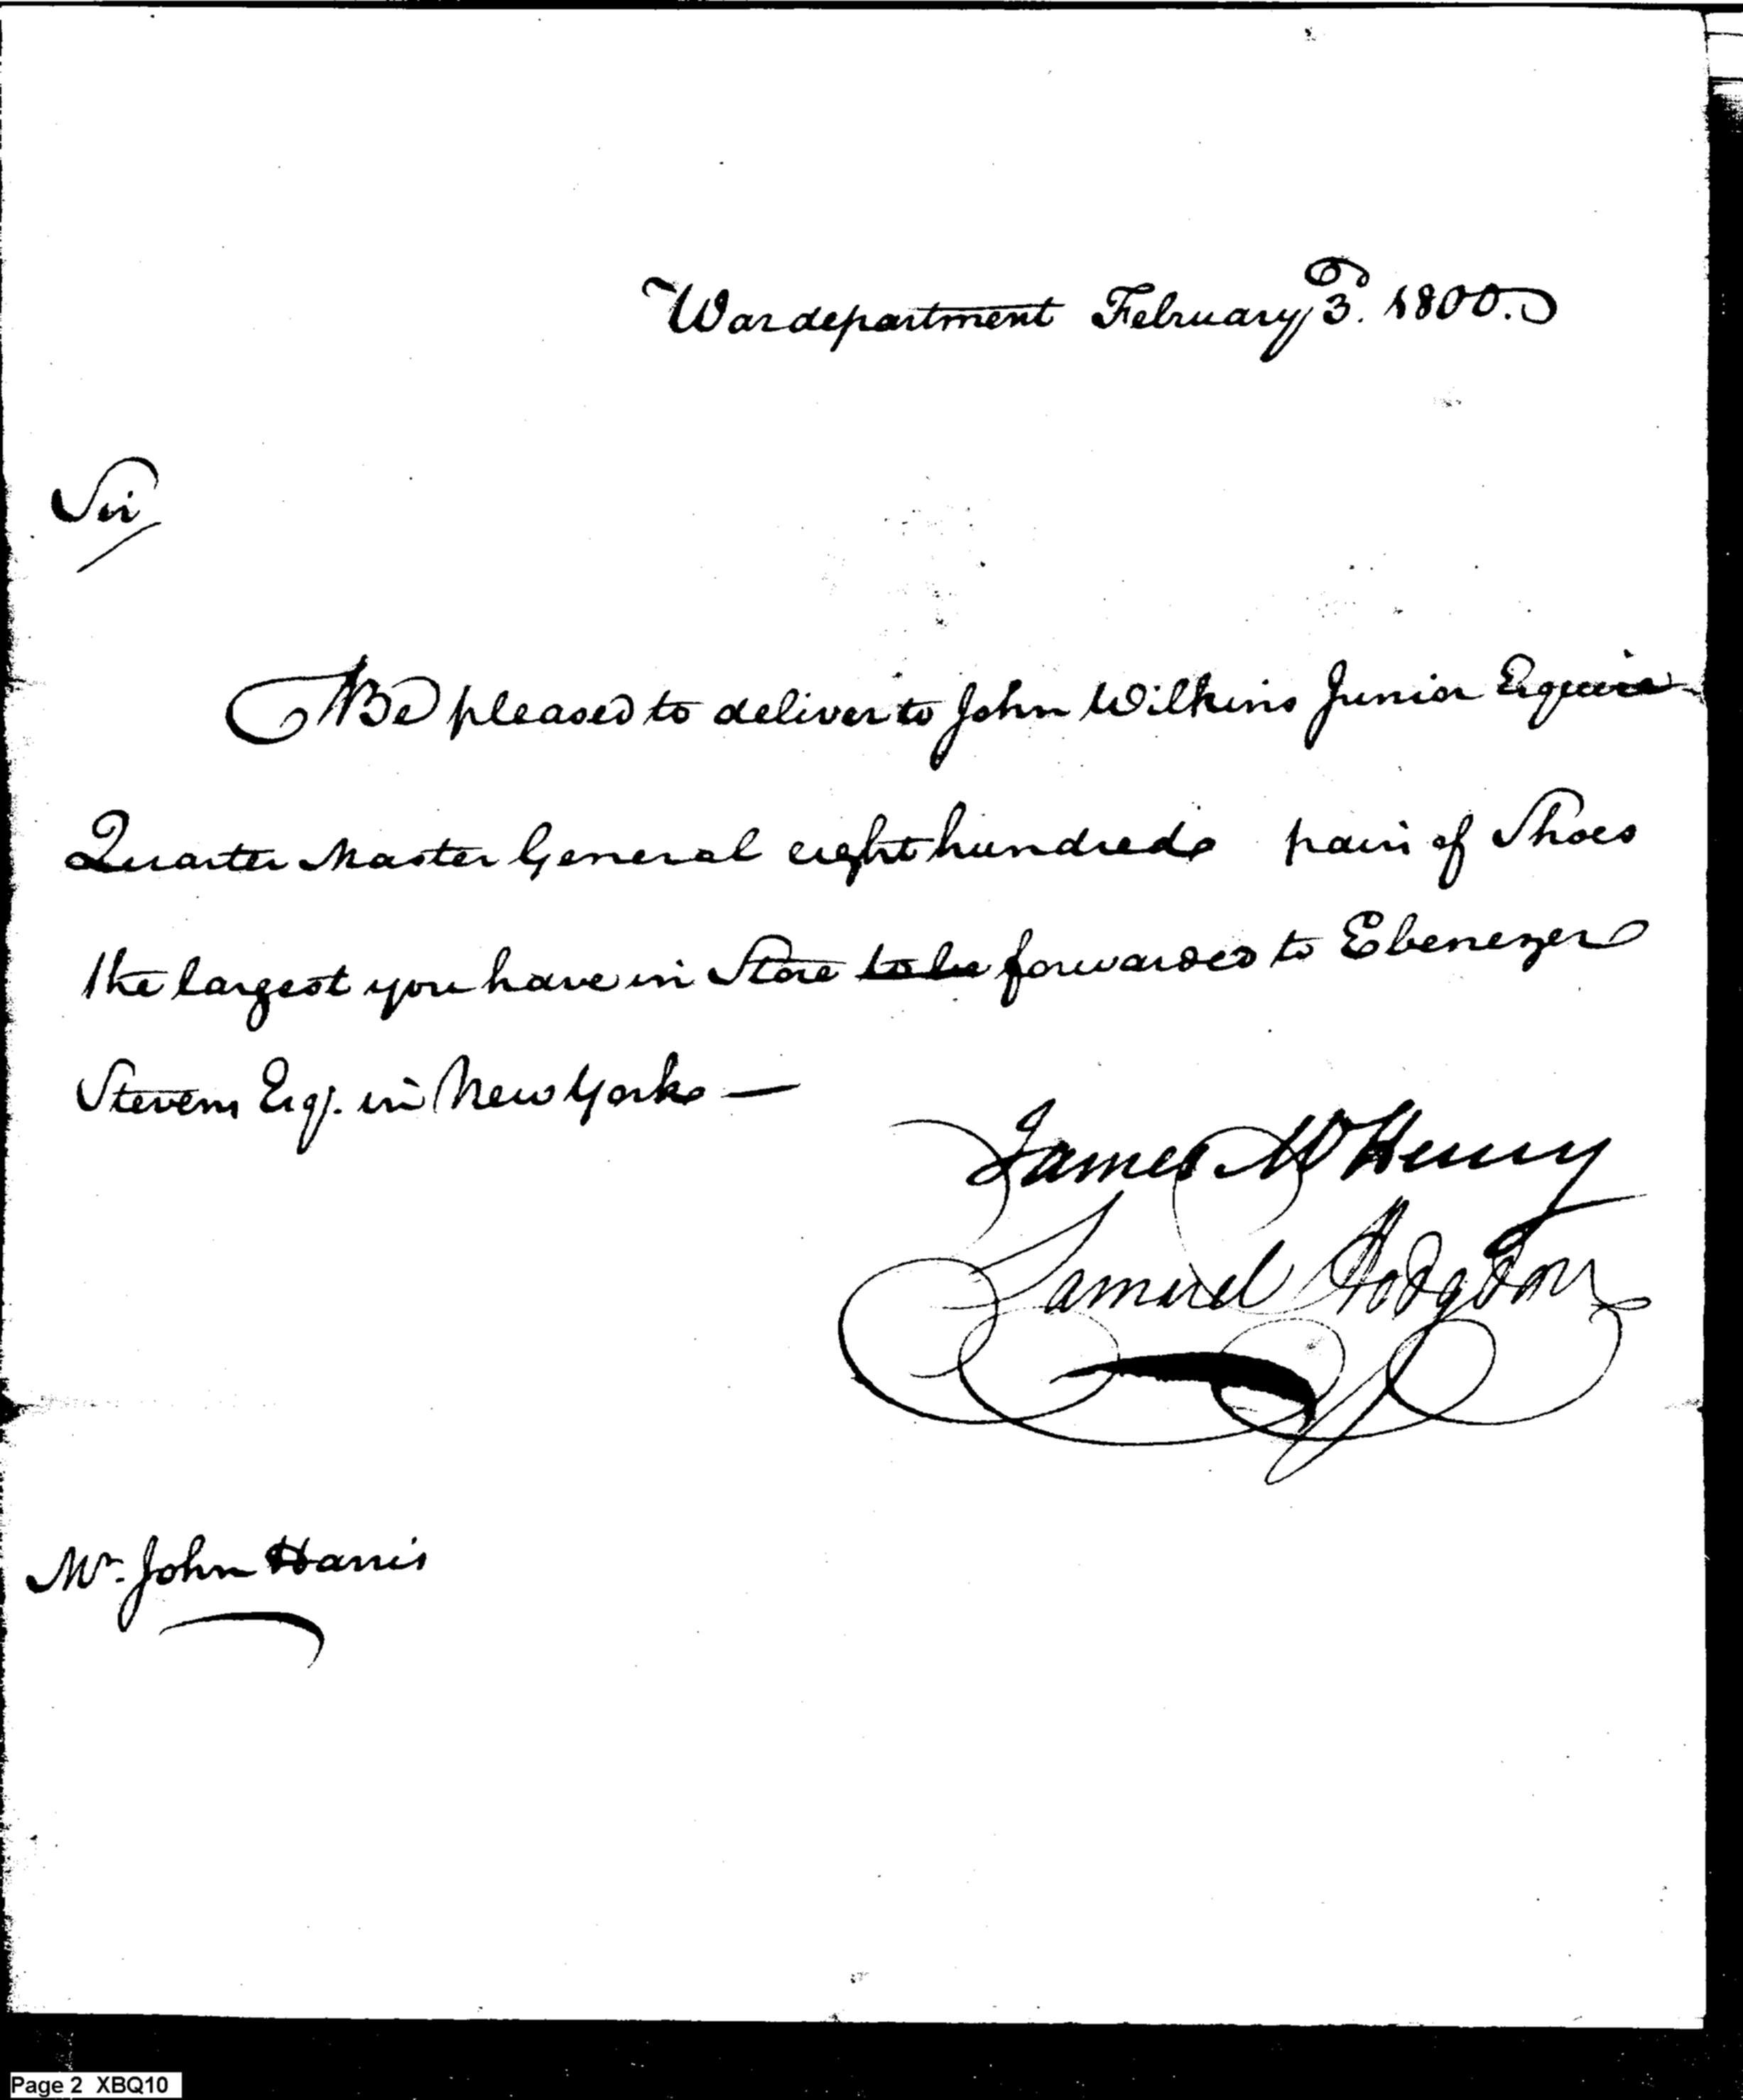 War department February 3d. 1800.
Sir
Be pleased to deliver to John Wilkins Junior Esquire
Quarter Master General eight hundred pair of Shoes
the largest you have in Store to be forwarded to Ebenezer
Stevens Esq. in New York —
James McHenry
Samuel Hodgdon
Mr. John Harris
Page 2 XBQ10